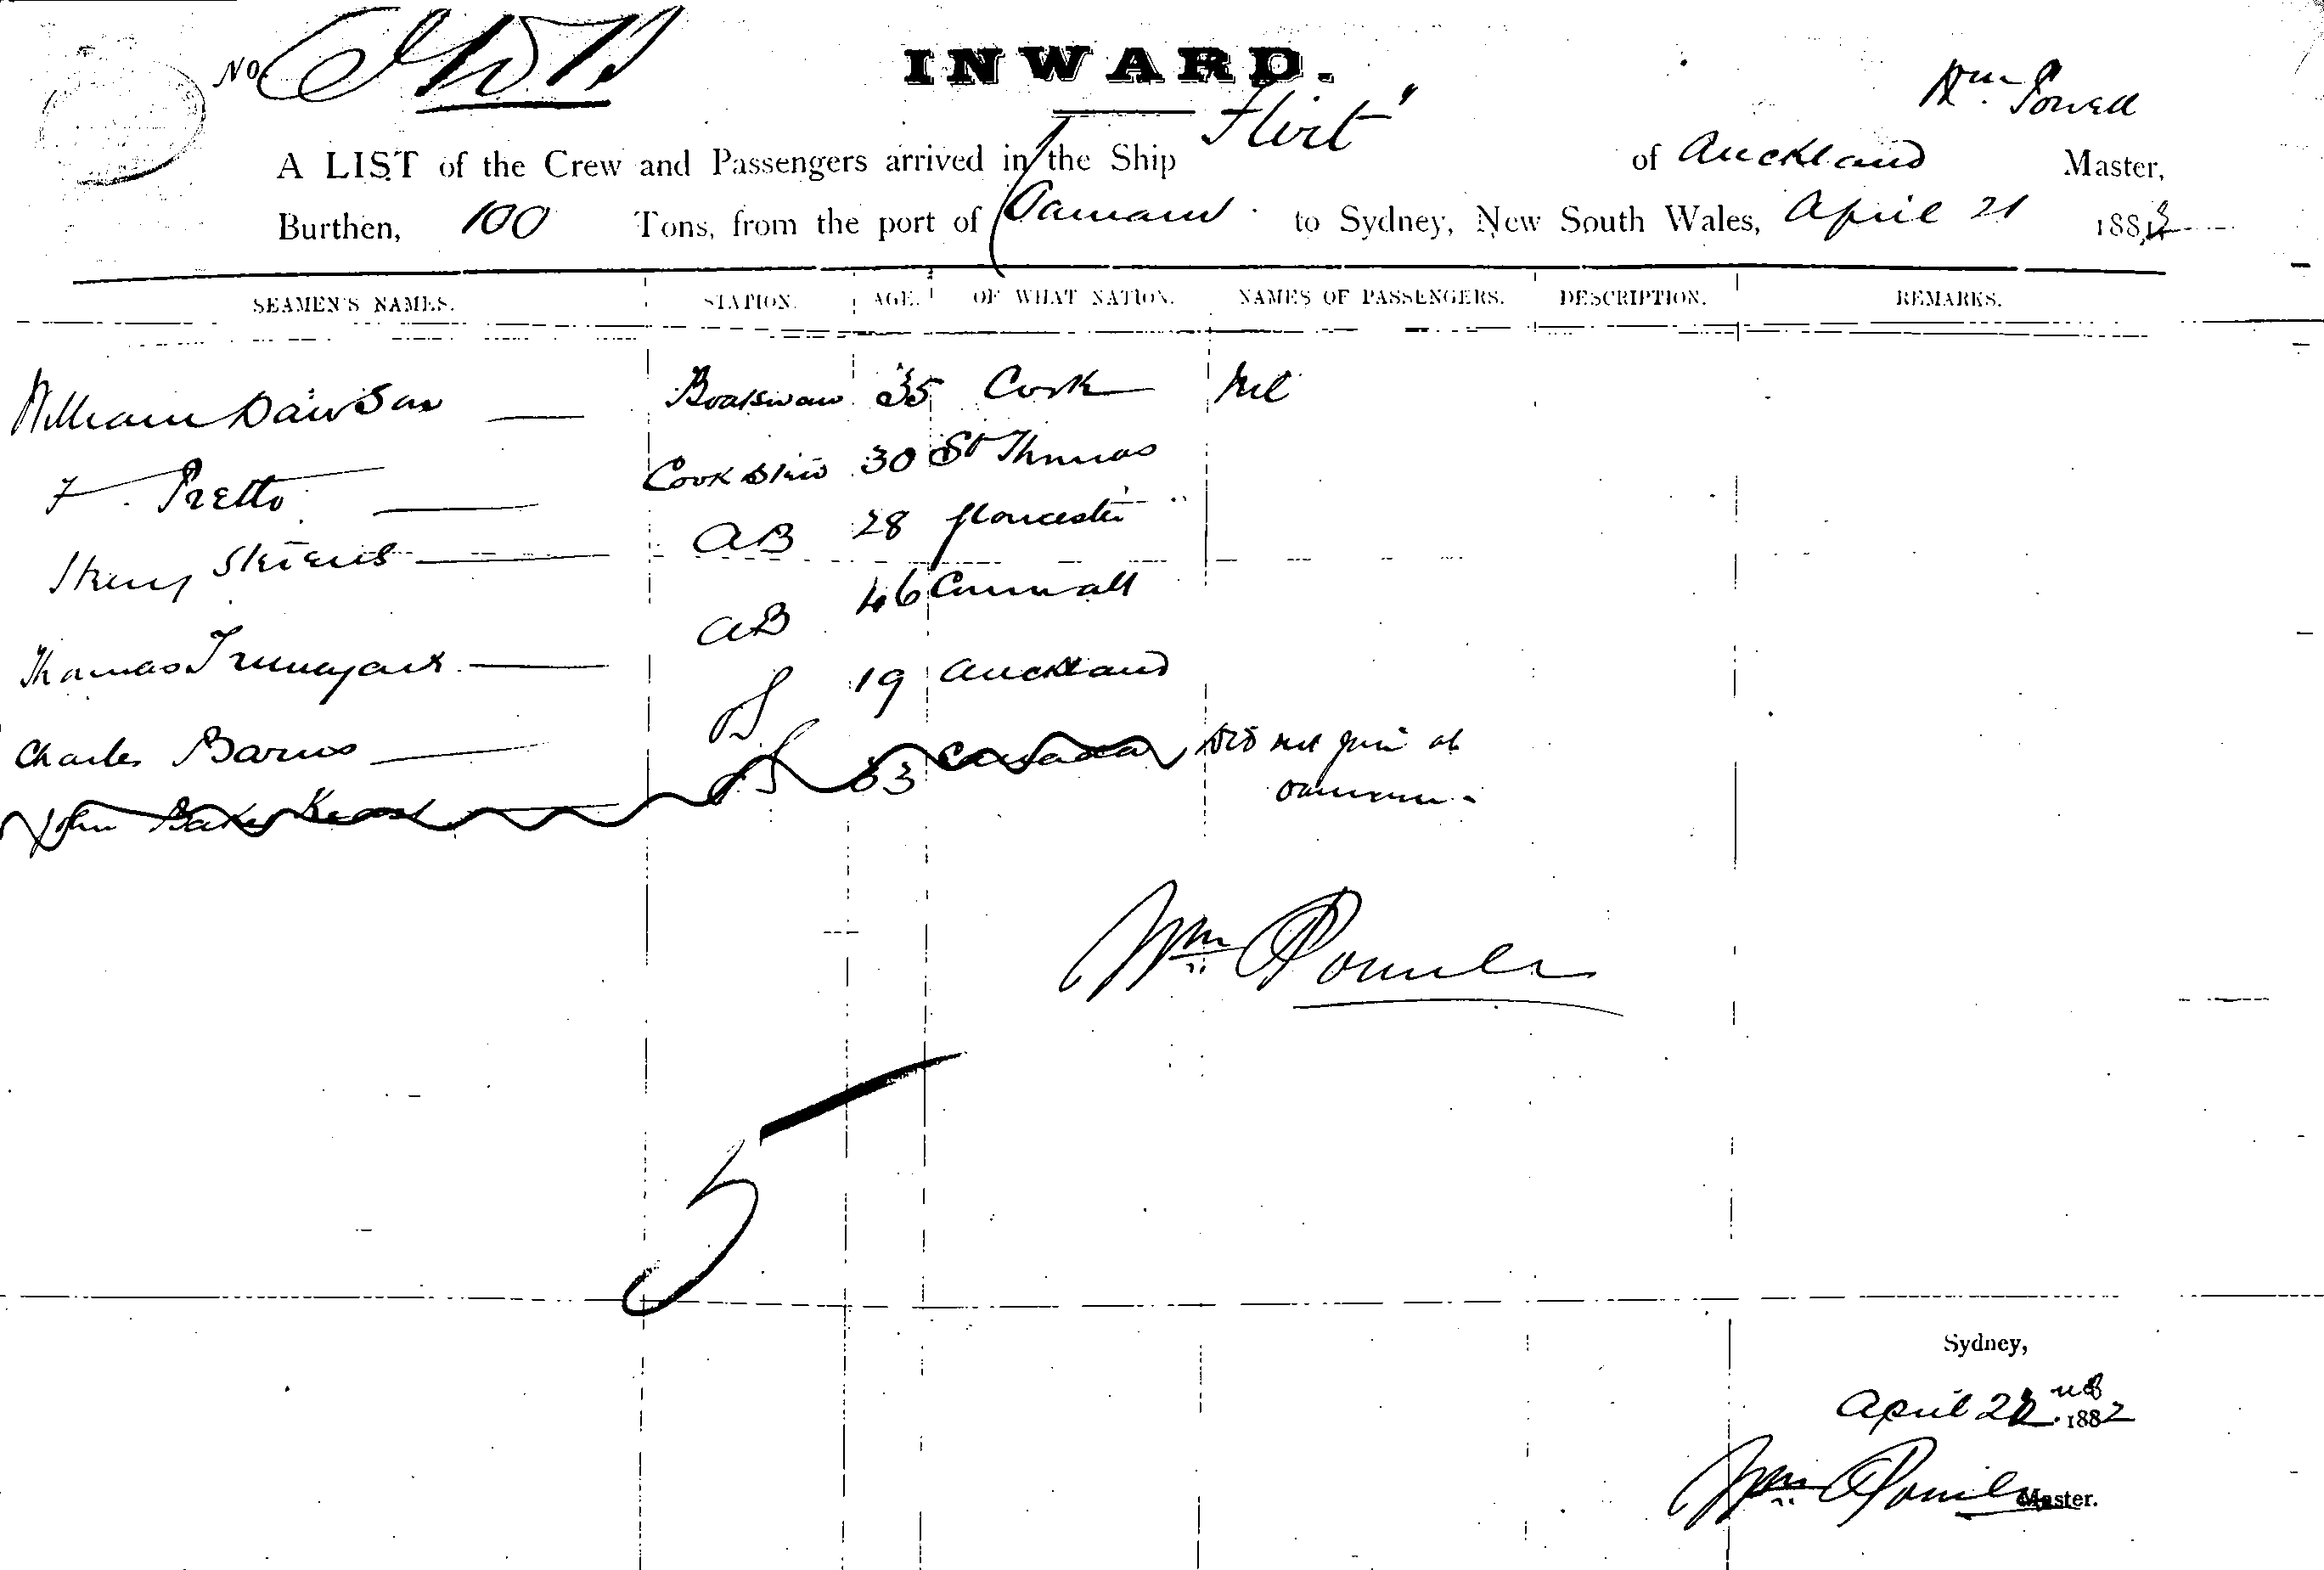 No
INWARD.
Wm Powell
A LIST of the Crew and Passengers arrived in the Ship "Flirt" of Auckland Master,
Burthen, 100 Tons, from the port of Oamaru to Sydney, New South Wales, April 21 1882
SEAMEN'S NAMES. STATION. AGE. OF WHAT NATION. NAMES OF PASSENGERS. DESCRIPTION. REMARKS.
William Dawson Boatswain 35 Cork Nil
F. Pretto Cook & Stwd 30 St Thomas
Henry AB 28 Gloucester
Thomas AB 46 Cornwall
Charles Barns OS 19 Auckland
John Baker OS 33 Canada Did not join at
Oamaru
Wm Powell
5
Sydney,
April 22nd 1882
Wm Powell Master.